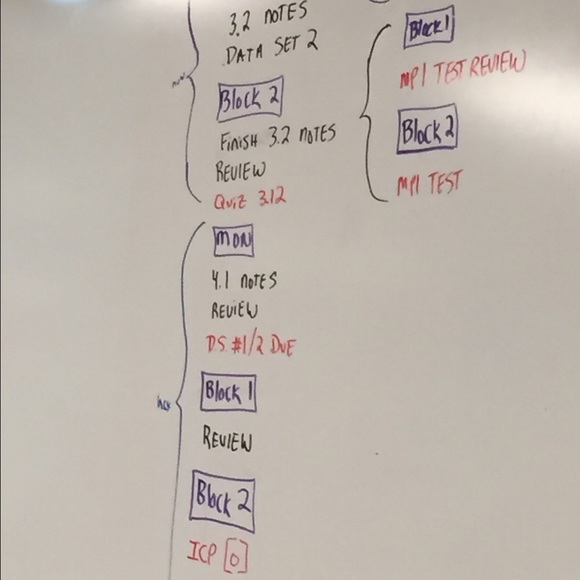 3.2 NOTES
DATA SET 2
Block 2
FINISH 3.2 NOTES
REVIEW
QUIZ 3.1/2
MON
4.1 NOTES
REVIEW
D.S. #1/2 DUE
Block 1
REVIEW
Block 2
ICP [0]
Block 1
MP1 TEST REVIEW
Block 2
MP1 TEST